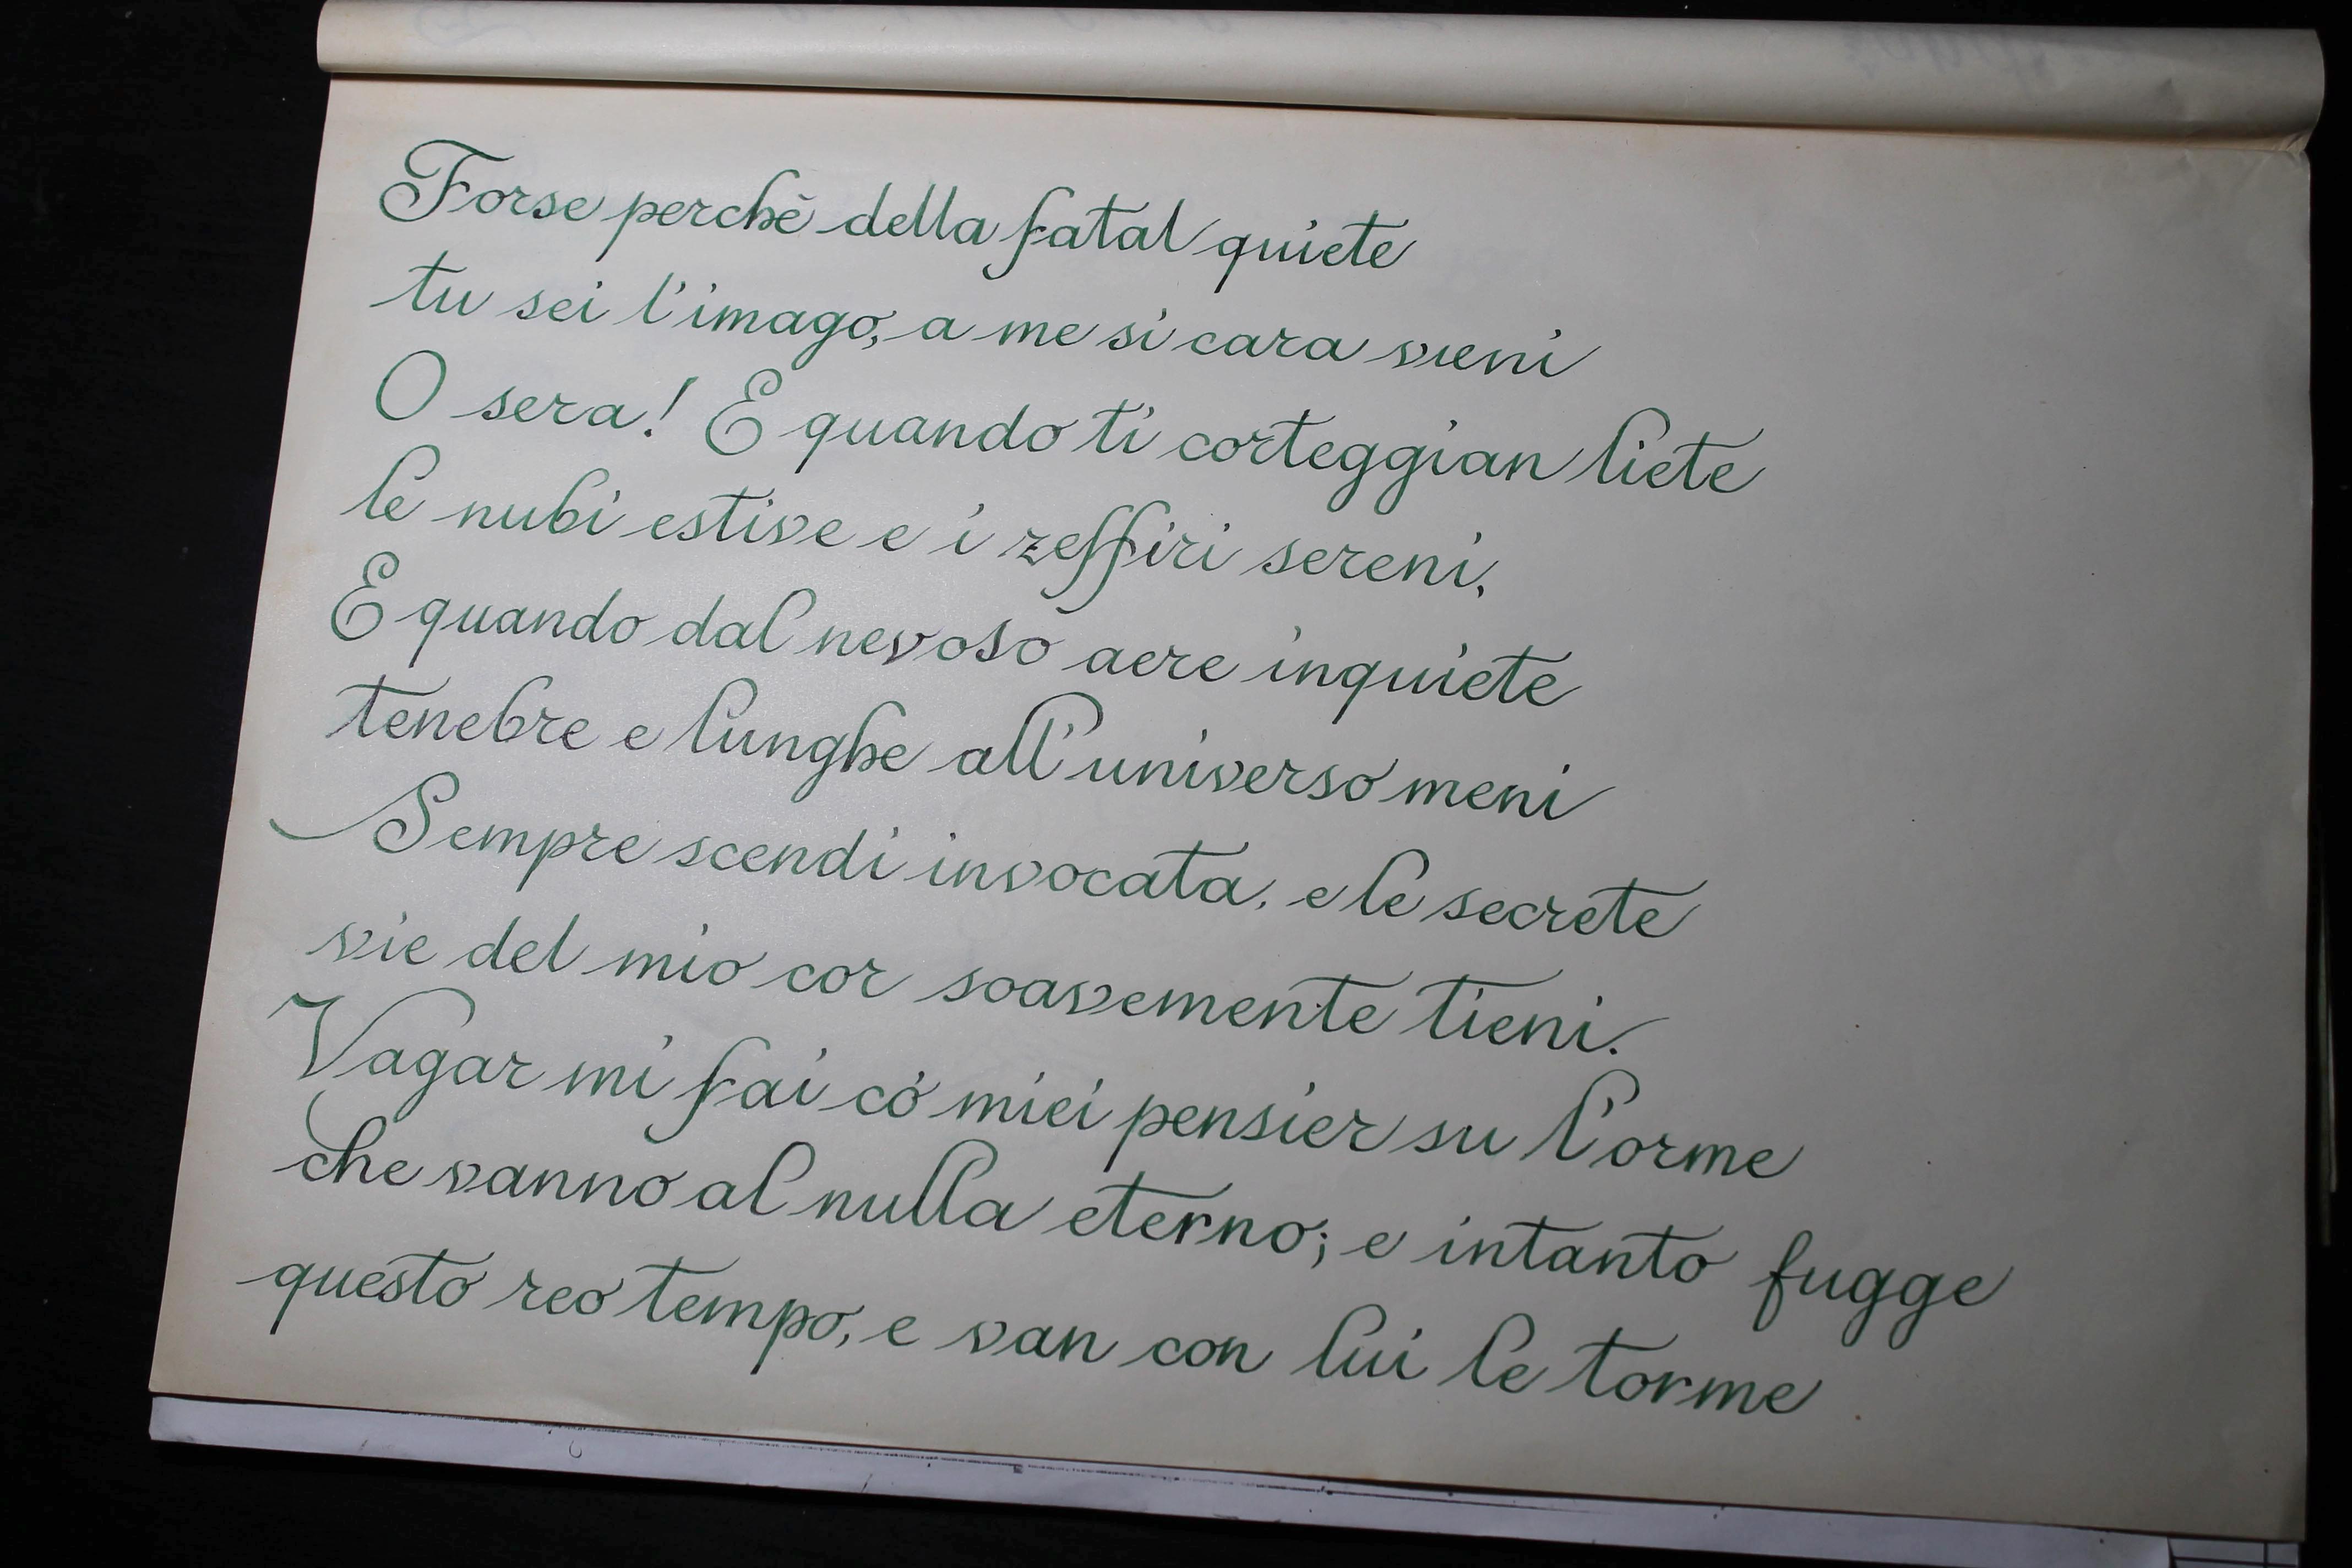 Forse perchè della fatal quiete
tu sei l'imago, a me si cara vieni
O sera! E quando ti corteggian liete
le nubi estive e i zeffiri sereni,
E quando dal nevoso aere inquiete
tenebre e lunghe all'universo meni
Sempre scendi invocata, e le secrete
vie del mio cor soavemente tieni.
Vagar mi fai co' miei pensier su l'orme
che vanno al nulla eterno; e intanto fugge
questo reo tempo, e van con lui le torme